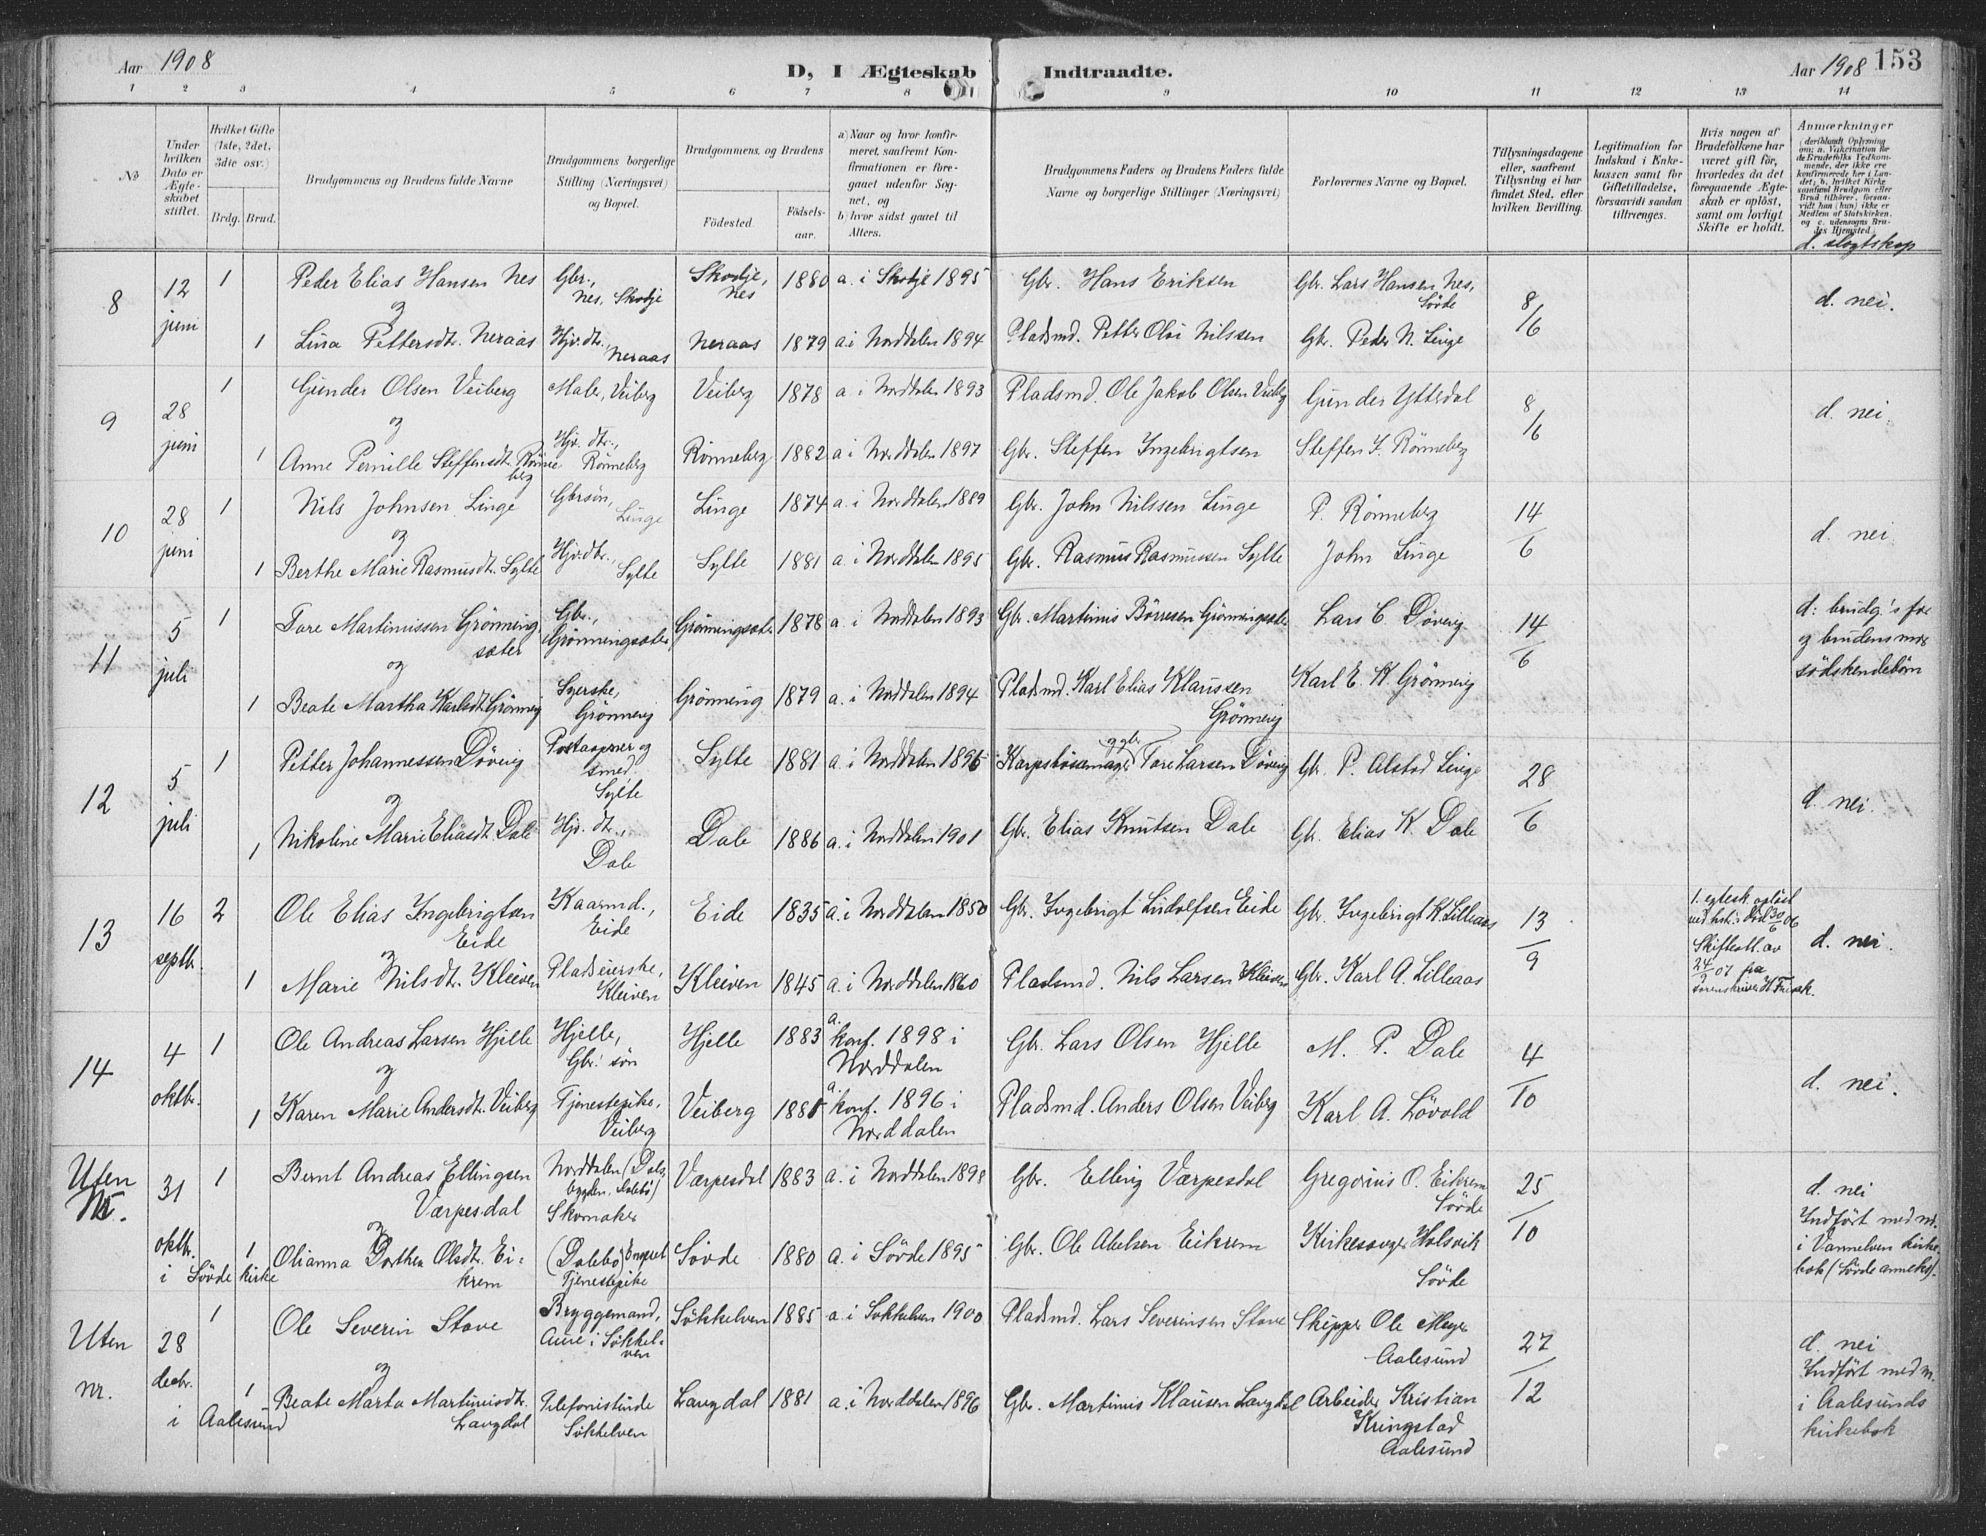 Aar 1908
D, I Ægteskab Indtraadte.
Aar 1908 153
1 2 3 4 5 6 7 8 9 10 11 12 13 14
No
Under hvilken Dato er Ægteskabet stiftet.
Hvilket Gifte (1ste, 2det, 3die osv.)
Brdg. Brud.
Brudgommens og Brudens fulde Navne
Brudgommens borgerlige Stilling (Næringsvei) og Bopæl.
Brudgommens og Brudens
Fødested.
Fødsels-aar.
a) Naar og hvor konfirmeret, saafremt Konfirmationen er foregaaet udenfor Sognet, og
b) hvor sidst gaaet til Alters.
Brudgommens Faders og Brudens Faders fulde Navne og borgerlige Stillinger (Næringsvei)
Forlovernes Navne og Bopæl.
Tillysningsdagene eller, saafremt Tillysning ei har fundet Sted, efter hvilken Bevilling.
Legitimation for Indskud i Enkekassen samt for Giftetilladelse, forsaavidt saadan tiltrænges.
Hvis nogen af Brudefolkene har været gift før, hvorledes da det foregaaende Ægteskab er opløst, samt om lovligt Skifte er holdt.
Anmærkninger
(deriblandt Oplysning om: a. Vakcination for de Brudefolks Vedkommende, der ikke ere konfirmerede her i Landet; b. hvilket Kirkesamfund Brudgom eller Brud tilhører, forsaavidt han (hun) ikke er Medlem af Statskirken, og c. udensogns Brudes Hjemsted.)
d. slegtskap
8 12 juni 1 Peder Elias Hansen Nes Gbr., Nes, Skodje Skodje, Nes 1880 a. i Skodje 1895 Gbr. Hans Eriksen Gbr. Lars Hansen Nes, Søvde 8/6 d. nei.
og
1 Lina Pettersdtr. Neraas Hjv. dtr., Neraas Neraas 1879 a. i Norddalen 1894 Pladsmd. Petter Olai Nilssen Gbr. Peder N. Linge
9 28 juni 1 Gunder Olsen Veiberg Maler, Veiberg Veiberg 1878 a. i Norddalen 1893 Pladsmd. Ole Jakob Olsen Veibg Gunder Yttedal 8/6 d. nei.
og
1 Anne Pernille Steffensdtr. Rønneberg Hjv. dtr., Rønneberg Rønneberg 1882 a. i Norddalen 1897 Gbr. Steffen Ingebrigtsen Steffen I. Rønneberg
10 28 juni 1 Nils Johnsen Linge Gbrsøn, Linge Linge 1874 a. i Norddalen 1889 Gbr. John Nilssen Linge P. Rønneberg 14/6 d. nei
og
1 Berthe Marie Rasmusdtr. Sylte Hjv. dtr., Sylte Sylte 1881 a. i Norddalen 1895 Gbr. Rasmus Rasmussen Sylte John Linge
11 5 juli 1 Tore Martinussen Grønningsæter Gbr., Grønningsæter Grønningsæter 1878 a. i Norddalen 1893 Gbr. Martinus Børresen Grønningsæter Lars C. Døving 14/6 d: brudg's far og brudens mor sødskendebørn
og
1 Beate Martha Karlsdtr. Grønning Syerske, Grønning Grønning 1879 a. i Norddalen 1894 Pladsmd. Karl Elias Klaussen Grønning Karl E. K. Grønning
12 5 juli 1 Petter Johannessen Døving Postaapner og smed. Sylte Sylte 1881 a. i Norddalen 1895 og gbr. Tore Larsen Døving Gbr. P. Alstad Linge 28/6 d. nei.
og
1 Nikoline Marie Eliasdtr. Dale Hjv. dtr., Dale Dale 1886 a. i Norddalen 1901 Gbr. Elias Knutsen Dale Gbr. Elias K. Dale
13 16 septbr. 2 Ole Elias Ingebrigtsen Eide Kaarmd., Eide Eide 1835 a. i Norddalen 1850 Gbr. Ingebrigt Ludolfsen Eide Gbr. Ingebrigt K. Lilleaas 13/9 1. egtesk. opløst ved hst. død 30/6 06 Skifteatt. av 24/9 07 fra Sorenskriver d. nei.
og
1 Marie Nilsdtr. Kleiven Pladseierske, Kleiven Kleiven 1845 a. i Norddalen 1860 Pladsmd. Nils Larsen Kleiven Gbr. Karl A. Lilleaas
14 4 oktbr. 1 Ole Andreas Larsen Hjelle Hjelle, Gbr. søn Hjelle 1883 a. konf. 1898 i Norddalen Gbr. Lars Olsen Hjelle M. P. Dale 4/10 d. nei.
og
1 Karen Marie Andersdtr. Veiberg Tjenestepike, Veiberg Veiberg 1881 a. konf. 1896 i Norddalen Pladsmd. Anders Olsen Veiberg Karl A. Løvold
Uten Nr. 31 oktbr. i Søvde kirke 1 Bernt Andreas Ellingsen Værpesdal Norddalen (Dalsbygden. Dalebø) Skomaker Værpesdal 1883 a. i Norddalen 1898 Gbr. Elling Værpesdal Gregorius O. Eikrem Søvde 25/10 d. nei
og
1 Olianna Dorthea Olsdtr. Eikrem (Dalebø) Tjenestepike Søvde 1880 a. i Søvde 1895 Gbr. Ole Abelsen Eikrem Kirkesanger Holsvik Søvde Indført med nr. i Vannelven kirkebok (Søvde anneks).
Uten nr. 28 decbr. i Aalesund 1 Ole Severin Stave Bryggemand, Aure i Søkkelven Søkkelven 1885 a. i Søkkelven 1900 Pladsmd. Lars Severinsen Stave Skipper Ole Myre Aalesund 27/12 d. nei
og
1 Beate Marta Martinusdtr. Langdal Telefonistinde Søkkelven Langdal 1881 a. i Norddalen 1896 Gbr. Martinus Klausen Langdal Arbeider Kristian Kringstad Aalesund Indført med nr. i Aalesunds kirkebok